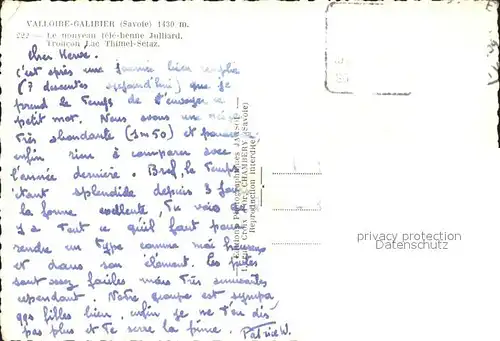 VALLOIRE-GALIBIER (Savoie) 1430 m.
222 — Le nouveau télé-benne Julliard.
Tronçon Lac Thimel-Setaz.
Cher Hervé.
C'est après une journée bien remplie
(7 descentes aujourd'hui) que je
prend le temps de t'envoyer ce
petit mot. Nous avons une neige
très abondante (1m50) et
enfin rien à comparer avec
l'année dernière. Bref, le temps
étant splendide depuis 3 jours
la forme excellente, tu vois qu'il
y a tout ce qu'il faut pour
rendre un type comme moi heureux
et dans son élément. Les pistes
sont assez faciles mais très amusantes
cependant. Notre groupe est sympa,
qqs filles bien. enfin je ne t'en dis
pas plus et te serre la pince. Patrice W.
CHAMBÉRY (Savoie)
Reproduction interdite
privacy protection
Datenschutz